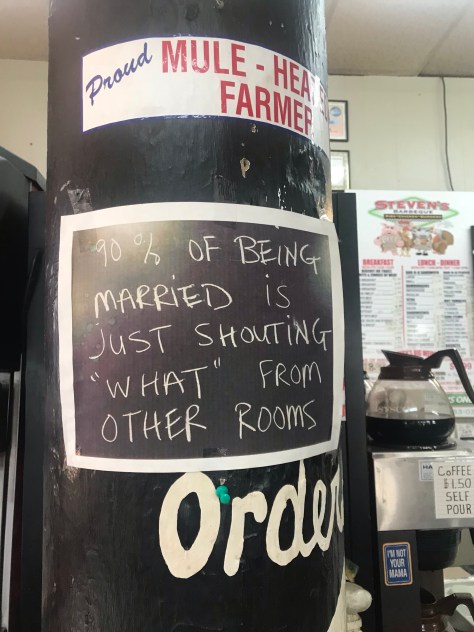 Proud MULE - HEA
FARMER
90 % OF BEING
MARRIED IS
JUST SHOUTING
"WHAT" FROM
OTHER ROOMS
Order
STEVEN'S
BARBEQUE
BREAKFAST
LUNCH - DINNER
COFFEE
$1.50
SELF
POUR
I'M NOT
YOUR
MAMA